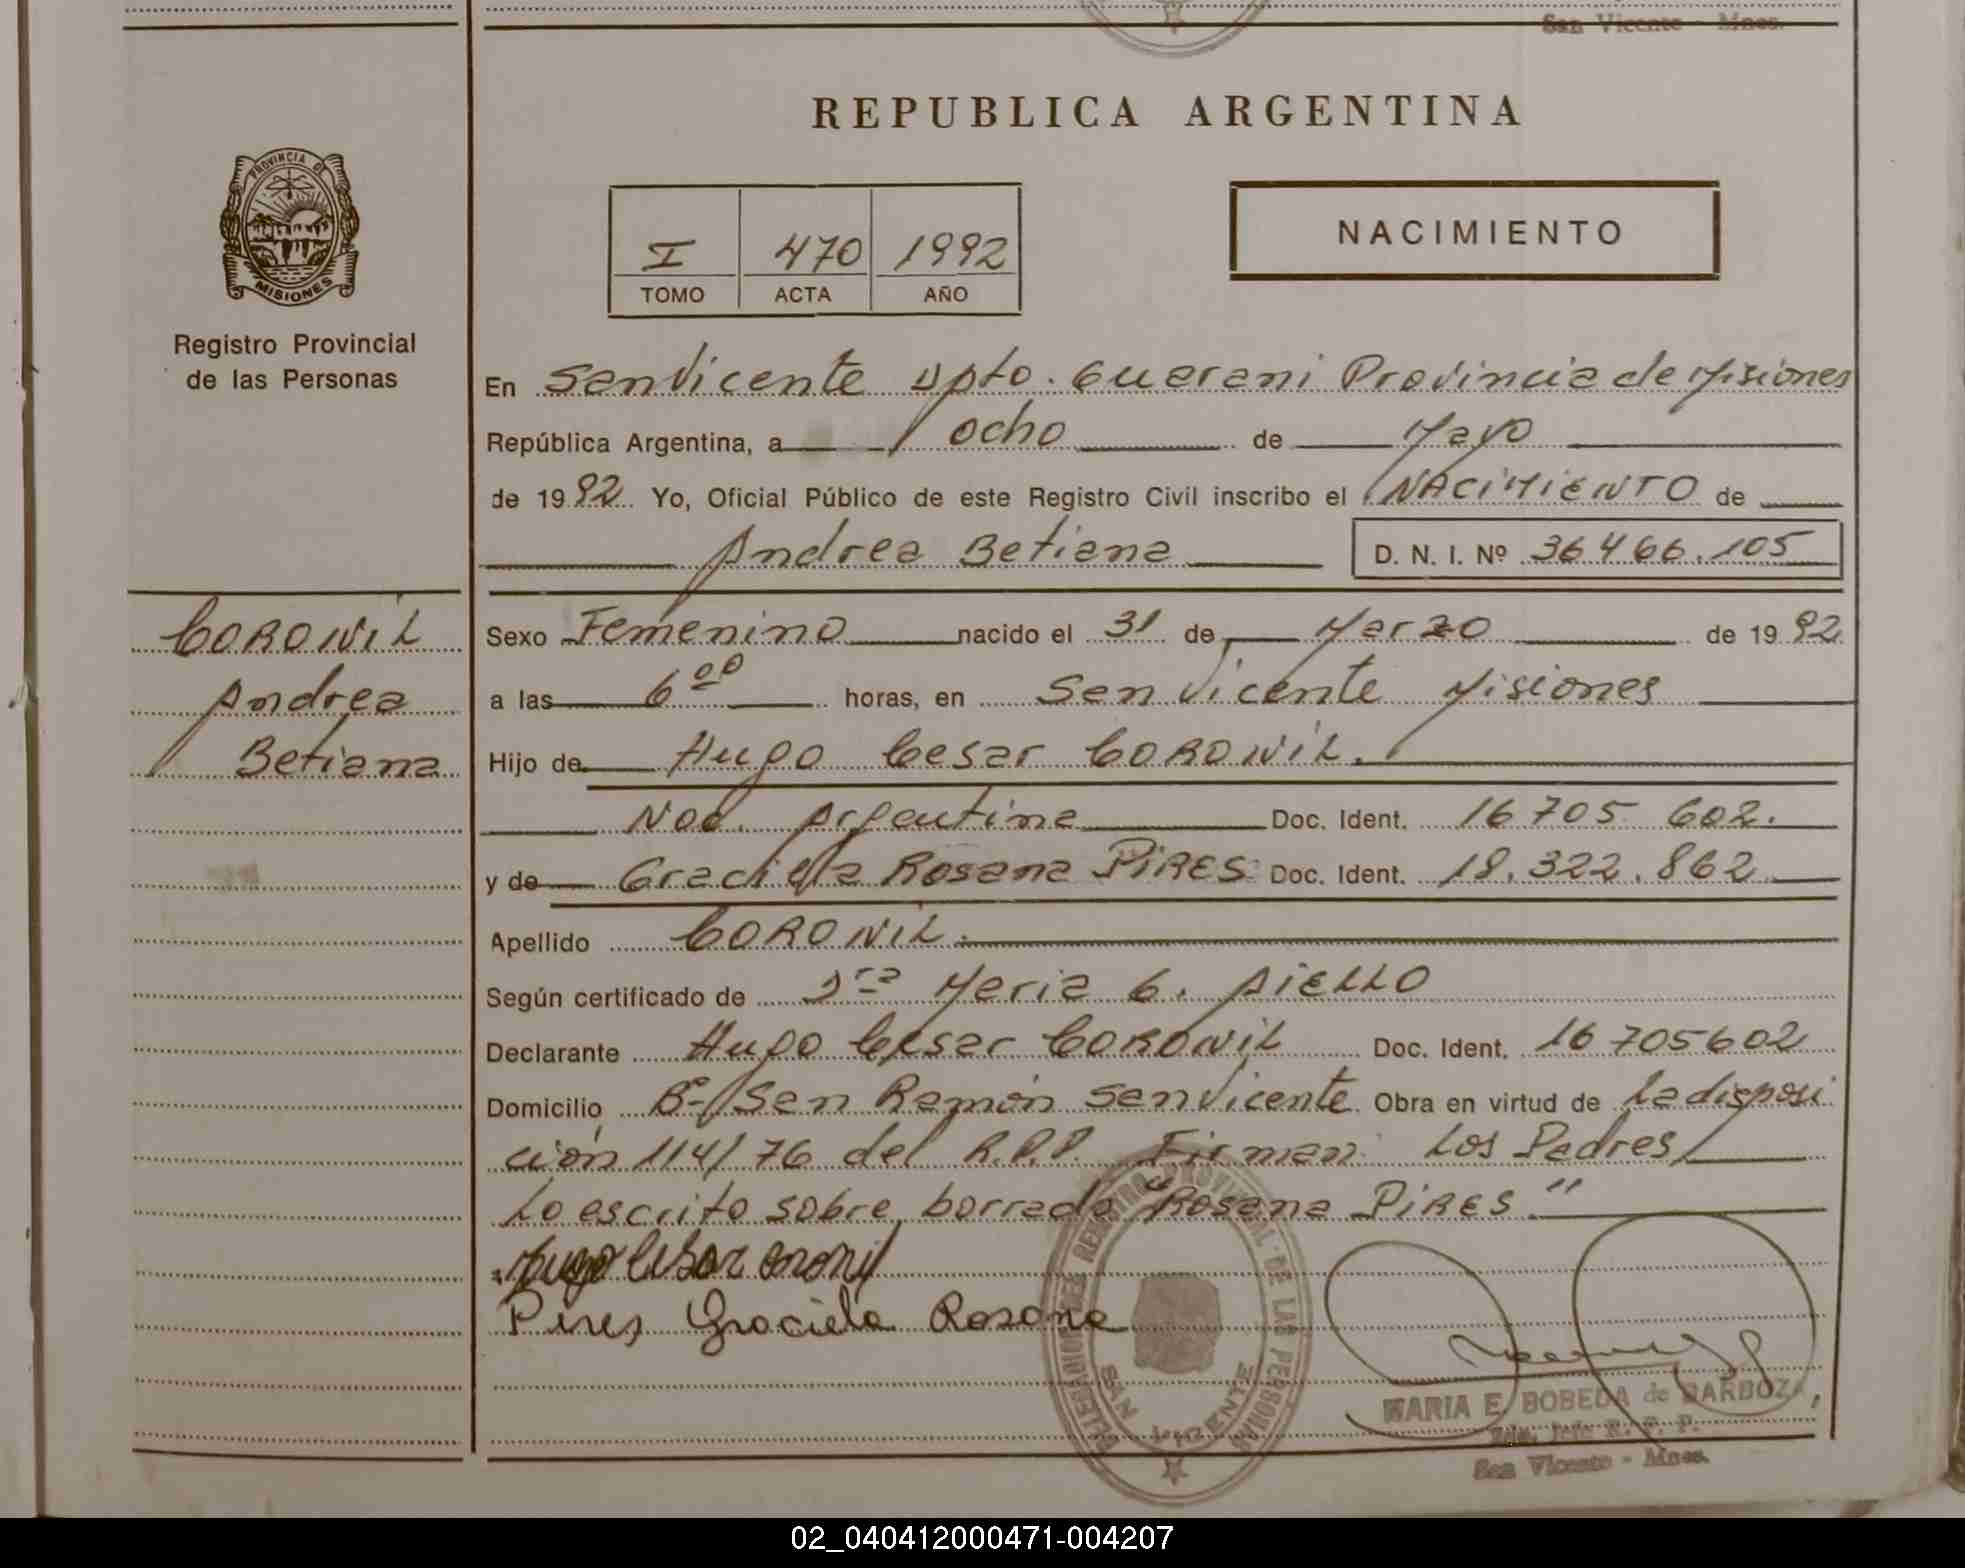 San Vicente - Mnes.
REPUBLICA ARGENTINA
PROVINCIA DE
MISIONES
NACIMIENTO
I 470 1992
TOMO ACTA AÑO
Registro Provincial
de las Personas
En San Vicente Dpto. Guarani Provincia de Misiones
República Argentina, a ocho de Mayo
de 1992 Yo, Oficial Público de este Registro Civil inscribo el NACIMIENTO de
Andrea Betiana D. N. I. Nº 36.466.105
CORONIL
Andrea
Betiana
Sexo Femenino nacido el 31 de Marzo de 1992
a las 6 00 horas, en San Vicente Misiones
Hijo de Hugo Cesar CORONIL.
Nac. Argentina Doc. Ident. 16 705 602.
y de Graciela Rosana PIRES Doc. Ident. 18.322.862
Apellido CORONIL.
Según certificado de Dra Maria G. AIELLO
Declarante Hugo Cesar CORONIL Doc. Ident. 16 705602
Domicilio Bº San Ramón San Vicente Obra en virtud de la disposi
ción 114/76 del R.P.P. Firman: Los Padres
Lo escrito sobre borrado "Rosana PIRES"
Hugo Cesar Coronil
Pires Graciela Rosana
REGISTRO PROVINCIAL DE LAS PERSONAS
SAN VICENTE
MARIA E. BOBEDA de BARBOZA
Jefe R. P. P.
San Vicente - Mnes.
02_040412000471-004207